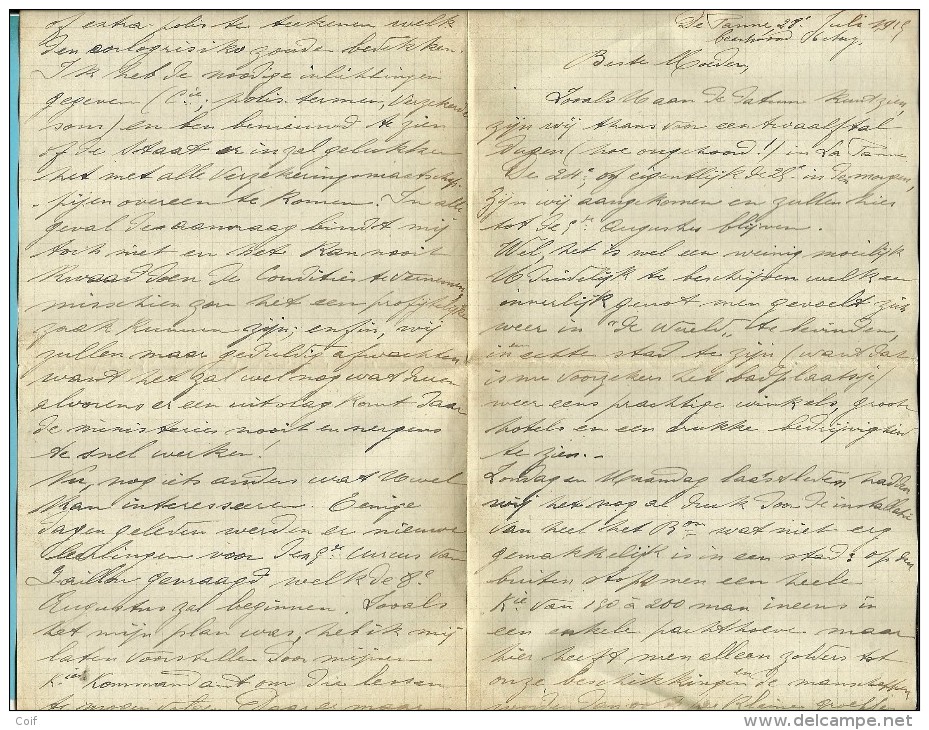 of extra polis te teekenen welk
den oorlogrisiko zouden bedekken.
Ik heb de noodige inlichtingen
gegeven (Cie, polis, termen, verzekerde
som) en ben benieuwd te zien
of de Staat er in zal gelukken
het met alle verzekeringsmaatschap-
pijen overeen te komen. In alle
geval de aanvraag bindt mij
toch niet en het kan nooit
kwaad doen de conditien te vernemen
misschien zou het een profijtelijke
zaak kunnen zijn; enfin, wij
zullen maar geduldig afwachten
want het zal wel nog wat duren
alvorens er een uitslag komt daar
de ministeries nooit en nergens
te snel werken.
Nu, nog iets anders wat U wel
kan interesseeren. Eenige
dagen geleden werden er nieuwe
leerlingen voor den cursus van
Gaillon gevraagd welk de 8e
Augustus zal beginnen. Zooals
het mijn plan was, heb ik mij
laten voorstellen door mijnen
Kommandant om die lessen
te mogen
De Panne 29e Juli 1915
Beste Moeder,
Zooals U aan de datum kunt zien,
zijn wij thans voor een twaalftal
dagen (hoe ongehoord!) in La Panne
De 24e, of eigentlijk de 25e in den morgen,
zijn wij aangekomen en zullen hier
tot de Augustus blijven.
Wel, het is wel een weinig moeilijk
U duidelijk te beschrijven welk een
innerlijk genot men gevoelt zich
weer in "de wereld" te bevinden,
in een echte stad te zijn (want dat
is nu voorzekers het badplaatsje)
weer eens prachtige winkels, groote
hotels en een drukke bedrijvigheid
te zien.-
Zondag en Maandag laatstleden hadden
wij het nog al druk door de installatie
van heel het Bon wat niet erg
gemakkelijk is in een stad: op den
buiten stopt men een heele
Kie van 150 à 200 man ineens in
een enkele pachthoeve maar
hier heeft men alleen zolders tot
onze beschikkingen en de manschappen
kleine groepen
Coif
www.delcampe.net